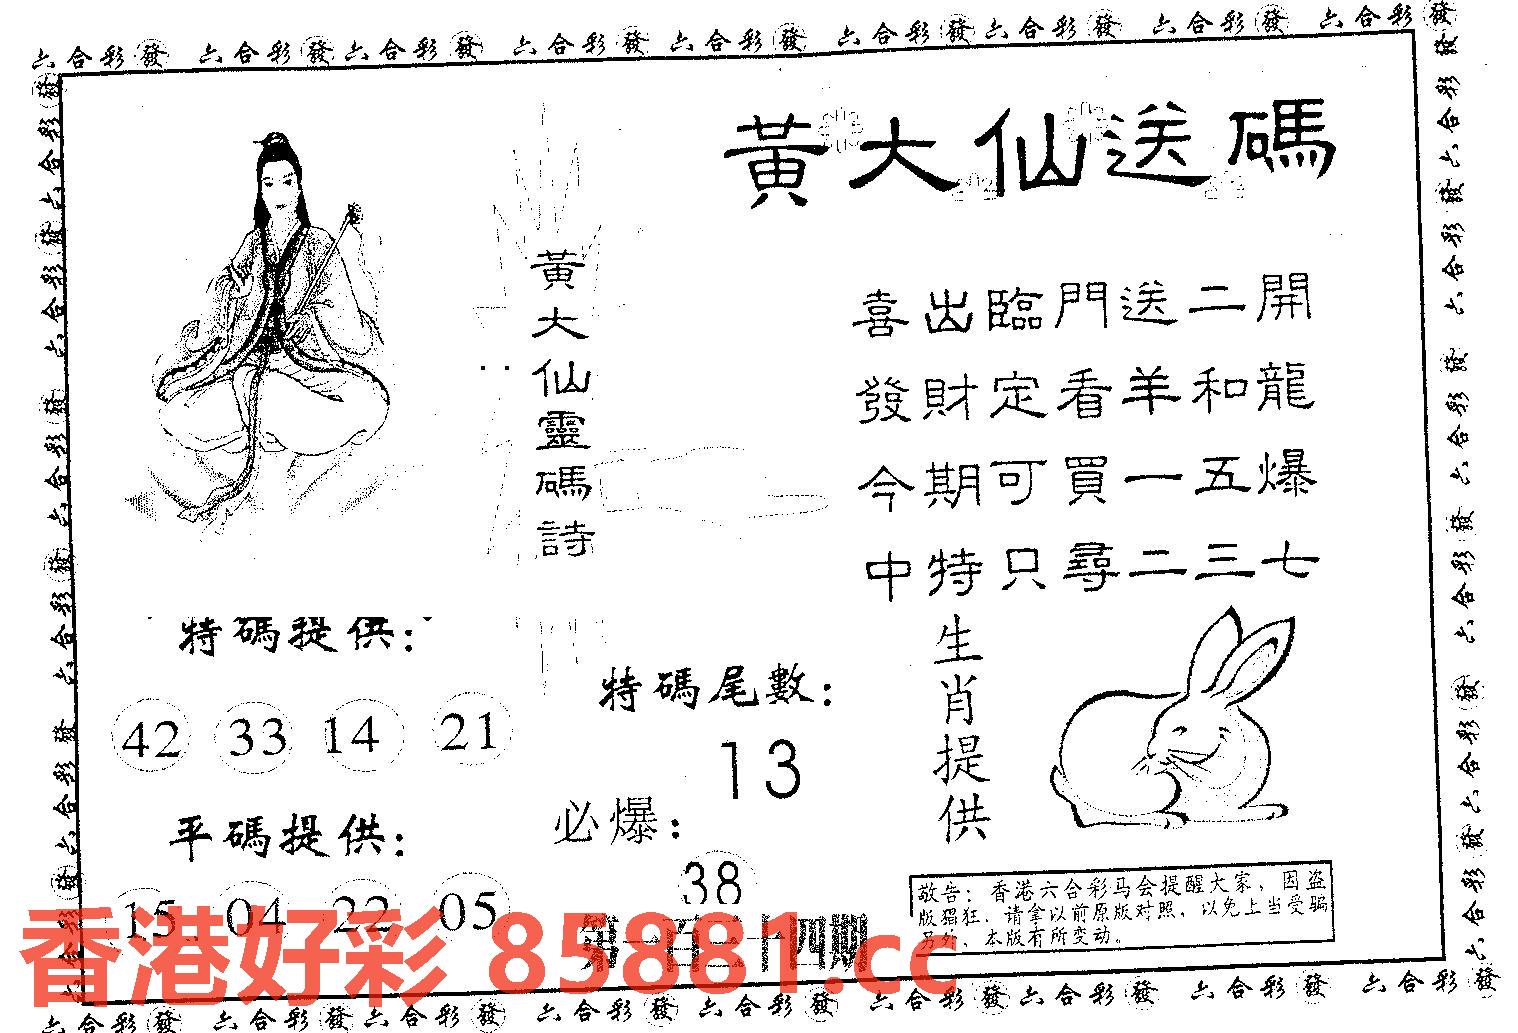 六合彩發 六合彩發六合彩發 六合彩發 六合彩發 六合彩發六合彩發 六合彩發 六合彩發
黃大仙送碼
黃大仙靈碼詩
喜出臨門送二開
發財定看羊和龍
今期可買一五爆
中特只尋二三七
特碼提供：
42 33 14 21
平碼提供：
15 04 22 05
特碼尾數：
13
必爆：
38
生肖提供
敬告：香港六合彩马会提醒大家，因盗
版猖狂，请拿以前原版对照，以免上当受骗
另外，本版有所变动。
第一百三十四期
香港好彩 85881.cc
六合彩發 六合彩發六合彩發 六合彩發 六合彩發 六合彩發六合彩發 六合彩發 六合彩發